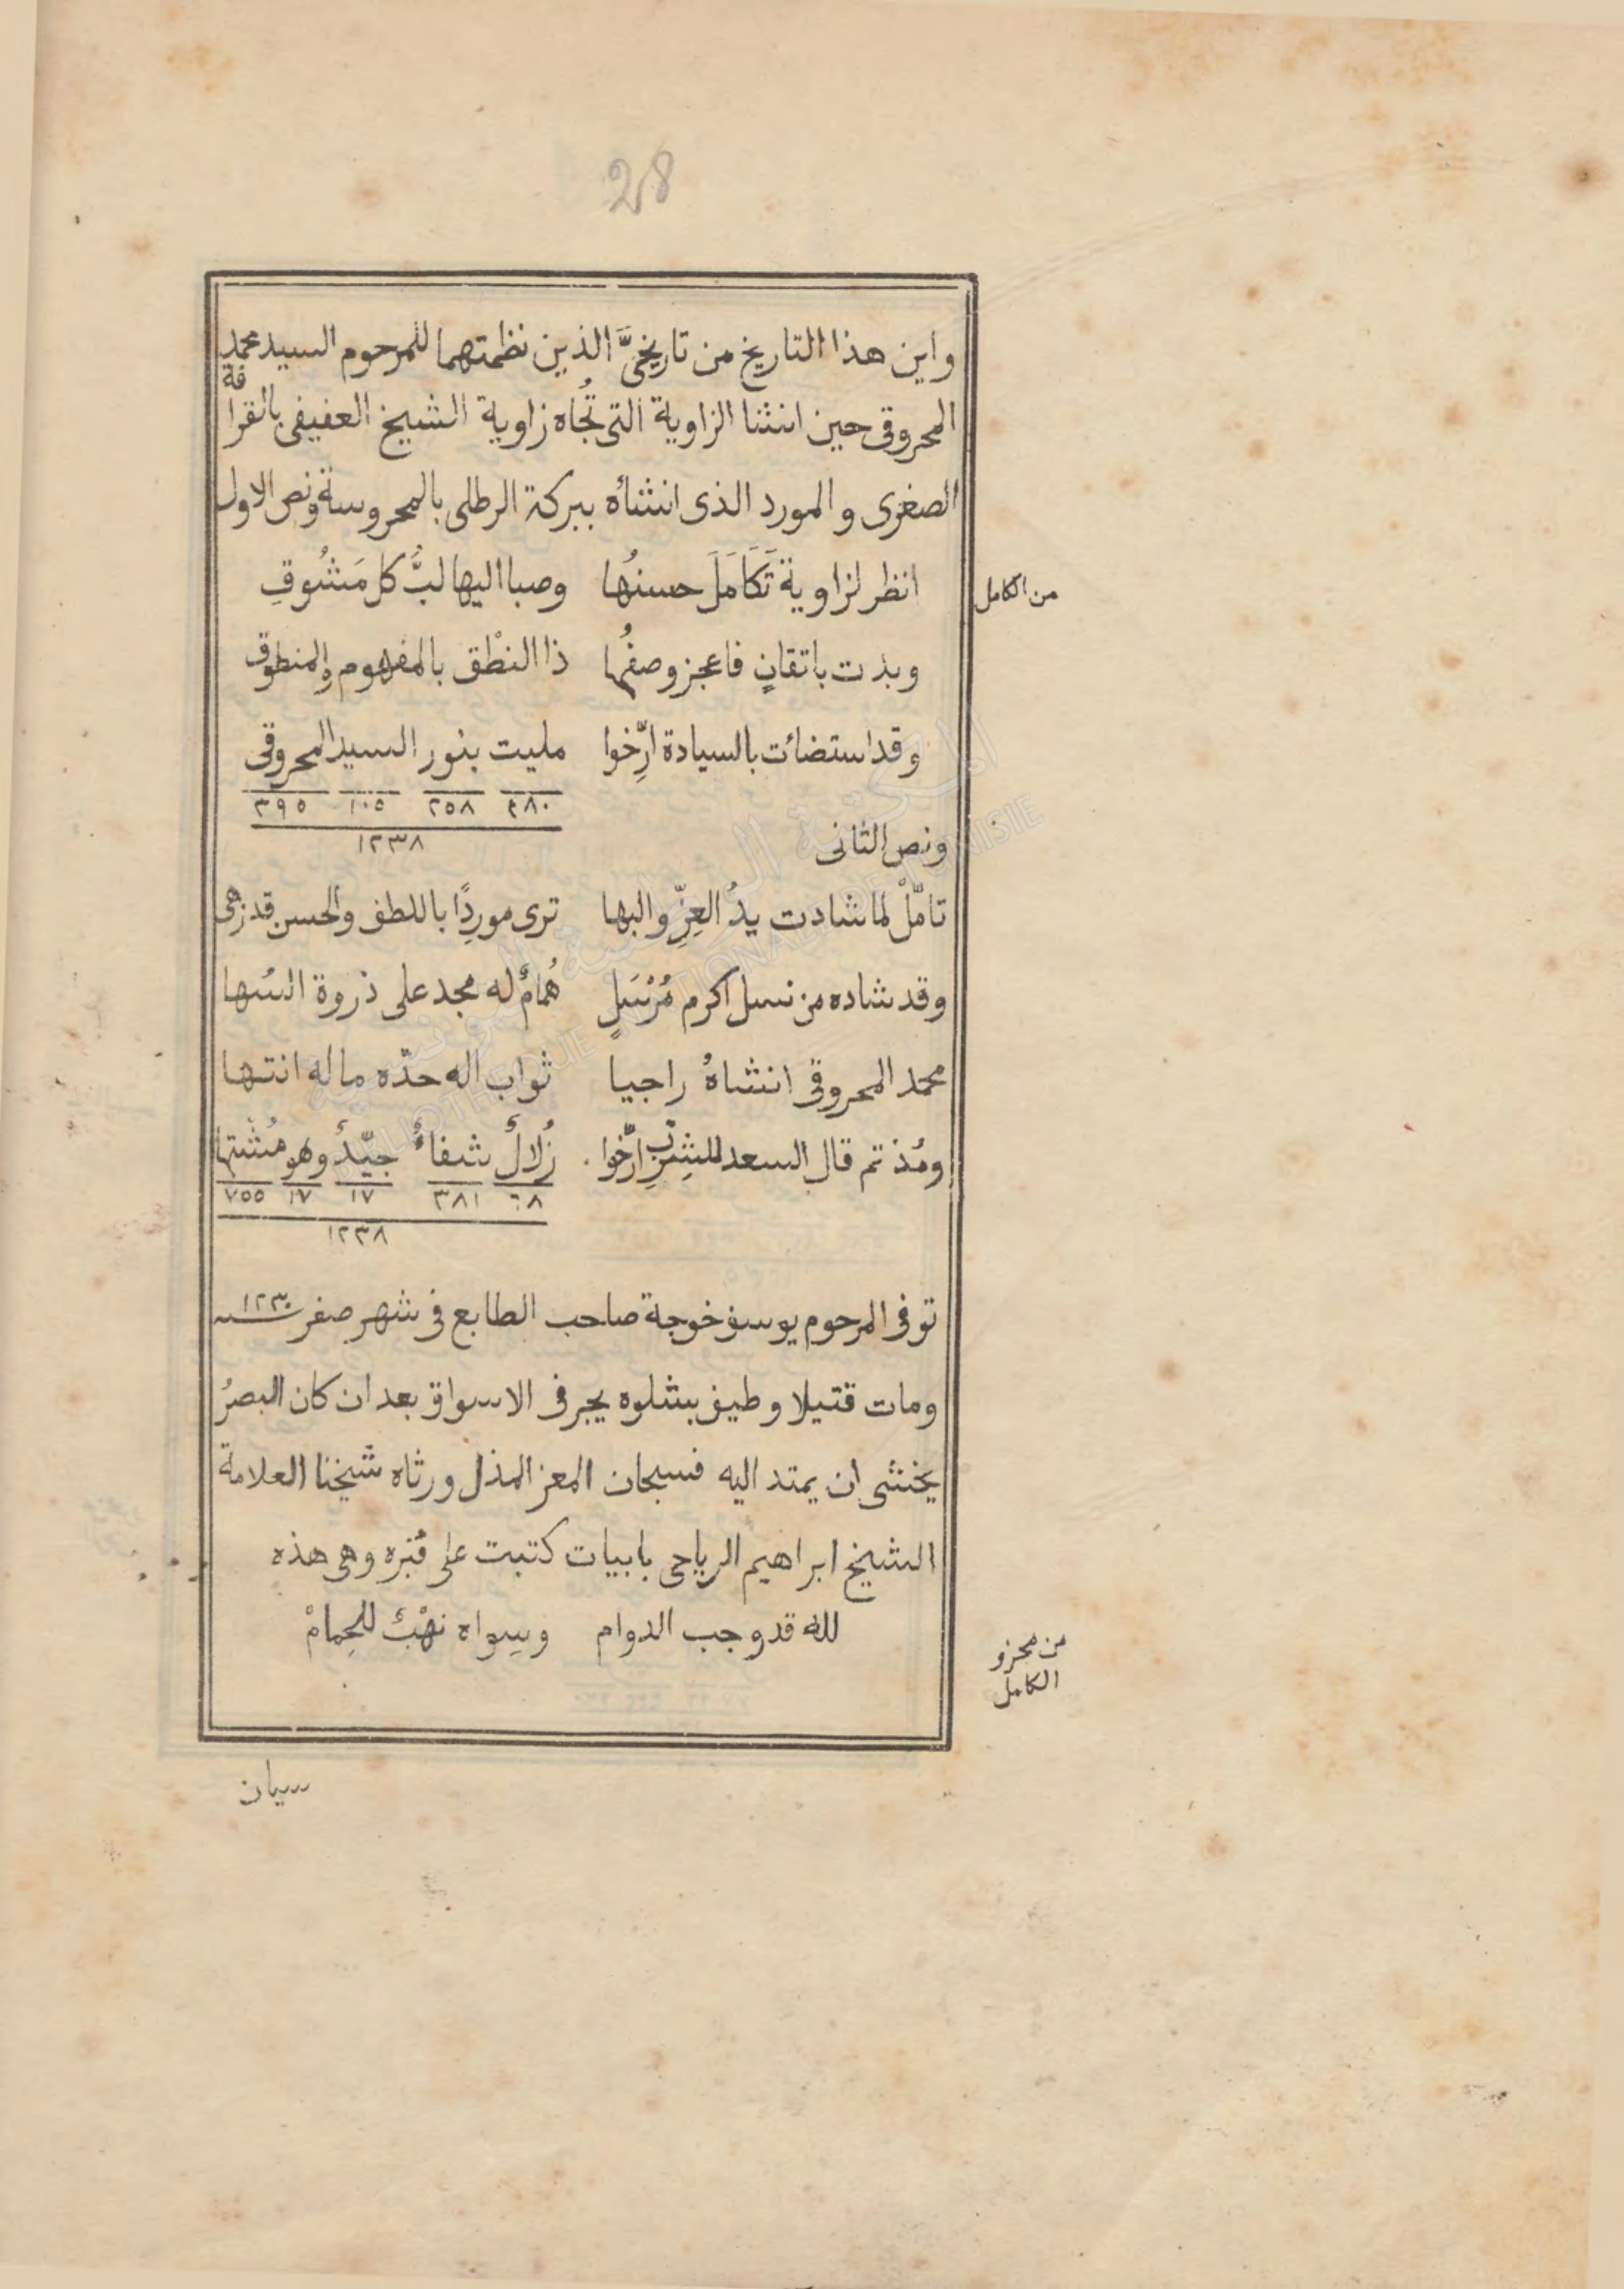 28
واين هذا التاريخ من تاريخيَّ الذين نظمتهما للمرحوم السيد محمد
المحروقى حين انشا الزاوية التى تُجاه زاوية الشيخ العفيفى بالقرافة
الصغرى والمورد الذى انشأه ببركة الرطلى بالمحروسة ونص الاول
من الكامل
انظر لزاوية تَكَامَلَ حسنُها وصبا اليها لبُّ كل مَشُوقِ
وبدت باتقانٍ فاعجز وصفُها ذا النطْق بالمفهوم والمنطوق
وقد استضائت بالسيادة ارِّخوا مليت بنور السيد المحروقى
٤٨٠ ٢٥٨ ١٠٥ ٣٩٥
١٢٣٨
ونص الثانى
تامّلْ لما شادت يدُ العِزِّ والبها ترى مورِدًا باللطف والحسن قد زهى
وقد شاده من نسل اكرم مُرْسَلٍ هُمامٌ له مجد على ذروة السُها
محمد المحروقى انشاهُ راجيا ثواب اله حدّه ماله انتها
ومُذ تم قال السعد للشِرْبِ ارِّخوا زُلالٌ شفاءٌ جيّدٌ وهو مُشْتها
٦٨ ٣٨١ ١٧ ١٧ ٧٥٥
١٢٣٨
توفى المرحوم يوسف خوجة صاحب الطابع فى شهر صفر سنة ١٢٣٠
ومات قتيلا وطيف بشلوه يجر فى الاسواق بعد ان كان البصرُ
يخشى ان يمتد اليه فسبحان المعز المذل ورثاه شيخنا العلامة
الشيخ ابراهيم الرياحى بابيات كتبت على قبره وهى هذه
من مجزو
الكامل
لله قد وجب الدوام وسِواه نهْبٌ للحِمامْ
سيان